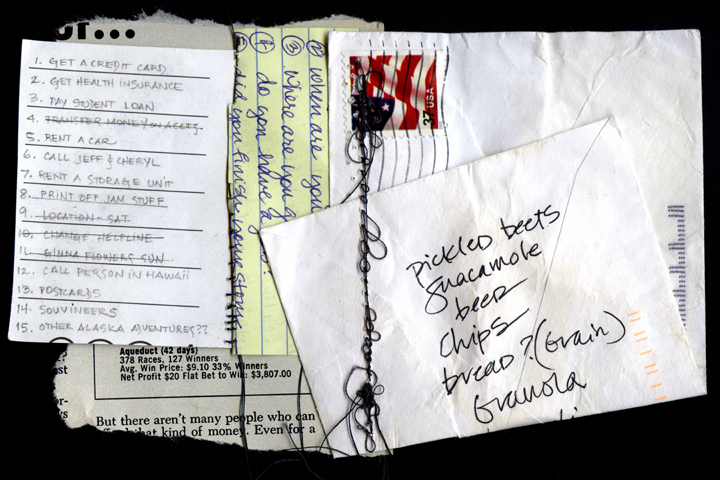 ur...
1. GET A CREDIT CARD
2. GET HEALTH INSURANCE
3. PAY STUDENT LOAN
4. TRANSFER MONEY ON ACCTS.
5. RENT A CAR
6. CALL JEFF & CHERYL
7. RENT A STORAGE UNIT
8. PRINT OFF JAM STUFF
9. LOCATION - SAT.
10. CHANGE HELPLINE
11. GINNA FLOWERS SUN
12. CALL PERSON IN HAWAII
13. POSTCARDS
14. SOUVINEERS
15. OTHER ALASKA ADVENTURES??
② when are you
③ where are you
④ do you have a
⑤ did you finish
37 USA
pickled beets
guacamole
beer
chips
bread? (Grain)
Granola
Aqueduct (42 days)
378 Races, 127 Winners
Avg. Win Price: $9.10 33% Winners
Net Profit $20 Flat Bet to Win: $3,807.00
st
or-
ys
But there aren't many people who can
afford that kind of money. Even for a